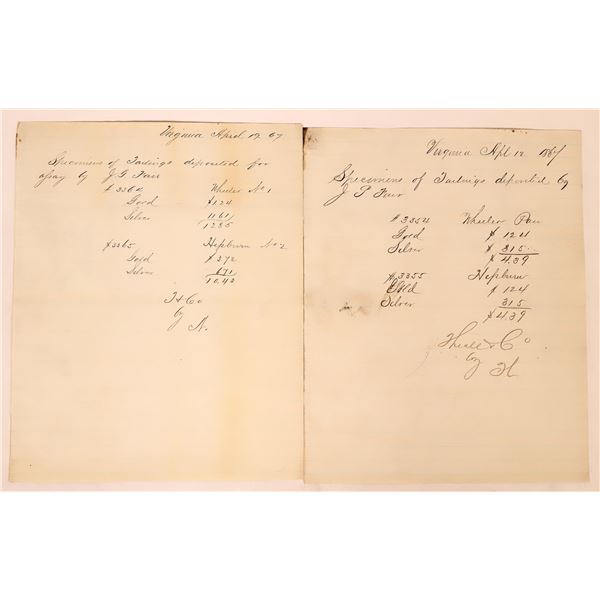 Virginia April 19 67
Specimens of Tailings deposited for
assay by J. G. Fair
# 3364 Wheeler No 1
Gold $1 24
Silver 11 61
12 85
# 3365 Hepburn No 2
Gold $3 72
Silver 6 71
10.43
T & Co
by
N.
Virginia Apl 12 1867
Specimens of Tailings deposited by
J G Fair
# 3354 Wheeler Pan
Gold $ 1 24
Silver $ 3 15
$ 4.39
# 3355 Hepburn
Gold $ 1 24
Silver 3 15
$ 4.39
Theall & Co
by
H